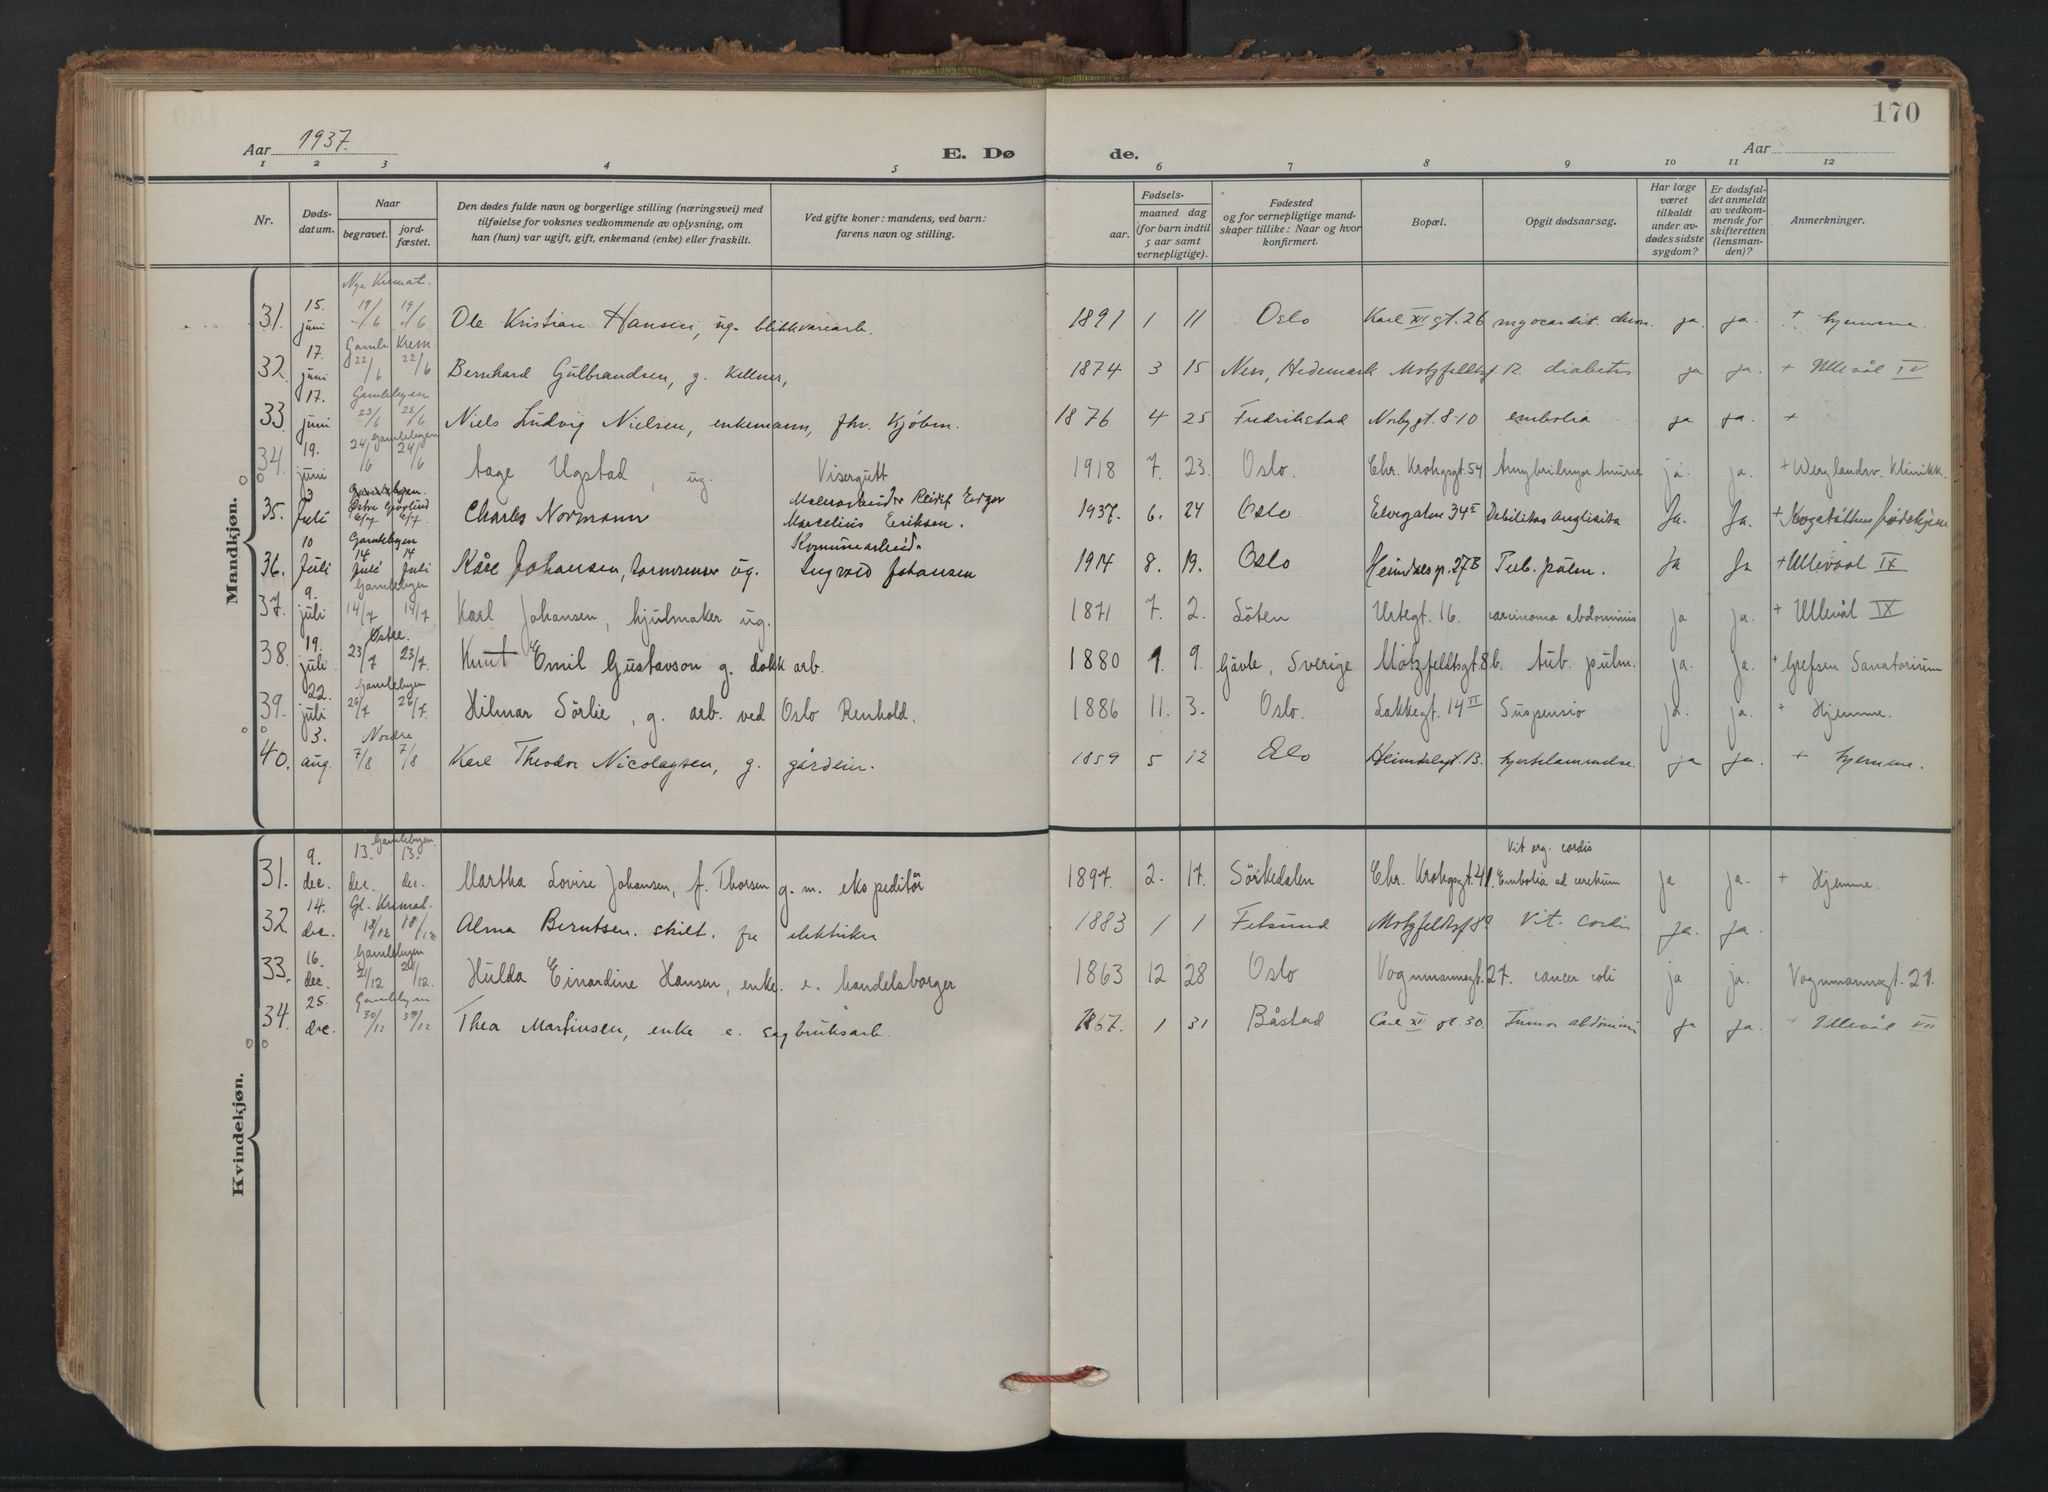 170
Aar 1937. E. Dø de. Aar
1 2 3 4 5 6 7 8 9 10 11 12
Nr. Døds-datum. Naar begravet. jord-fæstet. Den dødes fulde navn og borgerlige stilling (næringsvei) med tilføielse for voksnes vedkommende av oplysning, om han (hun) var ugift, gift, enkemand (enke) eller fraskilt. Ved gifte koner: mandens, ved barn: farens navn og stilling. Fødsels- aar. maaned dag (for barn indtil 5 aar samt vernepligtige). Fødested og for vernepligtige mand-skaper tillike: Naar og hvor konfirmert. Bopæl. Opgit dødsaarsag. Har læge været tilkaldt under av-dødes sidste sygdom? Er dødsfal-det anmeldt av vedkom-mende for skifteretten (lensman-den)? Anmerkninger.
Mandkjøn.
Nye Kremat.
31. 15. juni 19/6 19/6 Ole Kristian Hansen, ug. blikkvarearb. 1891 1 11 Oslo Karl XII gt. 26 myocardit. chron. ja. ja. + hjemme.
Gamle Krem.
32. 17. juni 22/6 22/6 Bernhard Gulbrandsen, g. kellner, 1874 3 15 Nes, Hedemark Motzfeldtsgt 12. diabetes ja ja. + Ullevål IV
Gamlebyen
33. 17. juni 23/6 23/6 Niels Ludvig Nielsen, enkemann, fhv. kjøbm. 1876 4 25 Fredrikstad Norbygt. 8-10 embolia ja ja. +
Gamlebyen
34. 19. juni 24/6 24/6 Aage Ugstad, ug. Visergutt 1918 7. 23. Oslo. Chr. Krohgsgt. 54 ja. ja. + Werglandsv. Klinikk.
Gamlebyen.
Østre Gravlund
35. 3 Juli 6/7 6/7 Charles Normann Malerarbeider Reidof Edgar Marcelius Eriksen. 1937. 6. 24 Oslo Elvegaten 34 II Debilitas Ja. Ja. +
Gamlebyen
36. 10 Juli 14 Juli 14 Juli Kåre Johansen, ug. Kommunearbeid. Ingvald Johansen 1914 8. 19. Oslo Heimdalsgt. 27B Tub. pulm. Ja Ja + Ullevaal IX
Gamlebyen
37. 9. juli 14/7 14/7 Karl Johansen, hjulmaker ug. 1871 7. 2. Löten Urtegt. 16. carcinoma abdominis ja ja. + Ullevål IX
Østre.
38. 19. juli 23/7 23/7. Knut Emil Gustavson g. dokk arb. 1880 9. 9. Gävle, Sverige Motzfeldtsgt 8 b. tub. pulm. ja. ja. + Grefsen Sanatorium
Gamlebyen
39. 22. juli 26/7 26/7. Hilmar Sörlie, g. arb. ved Oslo Renhold. 1886 11. 3. Oslo. Lakkegt. 14 II Suspensio ja. ja. + Hjemme.
Nordre
40. 3. aug. 7/8 7/8 Karl Theodor Nicolaysen, g. gårdein. 1859 5 12 Oslo Heimdalsgt. 13. hjertelammelse. ja ja. + hjemme.
Kvindekjøn.
Gamlebyen
31. 9. dec. 13. dec. 13. dec. Martha Lovise Johansen, f. Thorsen g. m. ekspeditör 1897. 2. 17. Sörkedalen Chr. Krohgsgt. 41. Vit org. cordis Embolia ad cerebrum ja ja. + Hjemme.
Gl. Kremat.
32. 14. dec. 18/12 18/12 Alma Berntsen. skilt. fra elektriker 1883 1 1 Fetsund Motzfeldtsgt 8a Vit. Cordis ja. ja.
Gamlebyen
33. 16. dec. 21/12 21/12. Hulda Einardine Hansen, enke. e. handelsborger 1863 12 28 Oslo Vognmannsgt. 27. cancer coli ja ja. Vognmannsgt. 27.
Gamlebyen
34. 25. dec. 30/12 30/12 Thea Martinsen, enke e. sagbruksarb. 1867. 1 31 Båstad Carl XI gt. 30. Tumor abdominis ja ja. + Ullevål VII